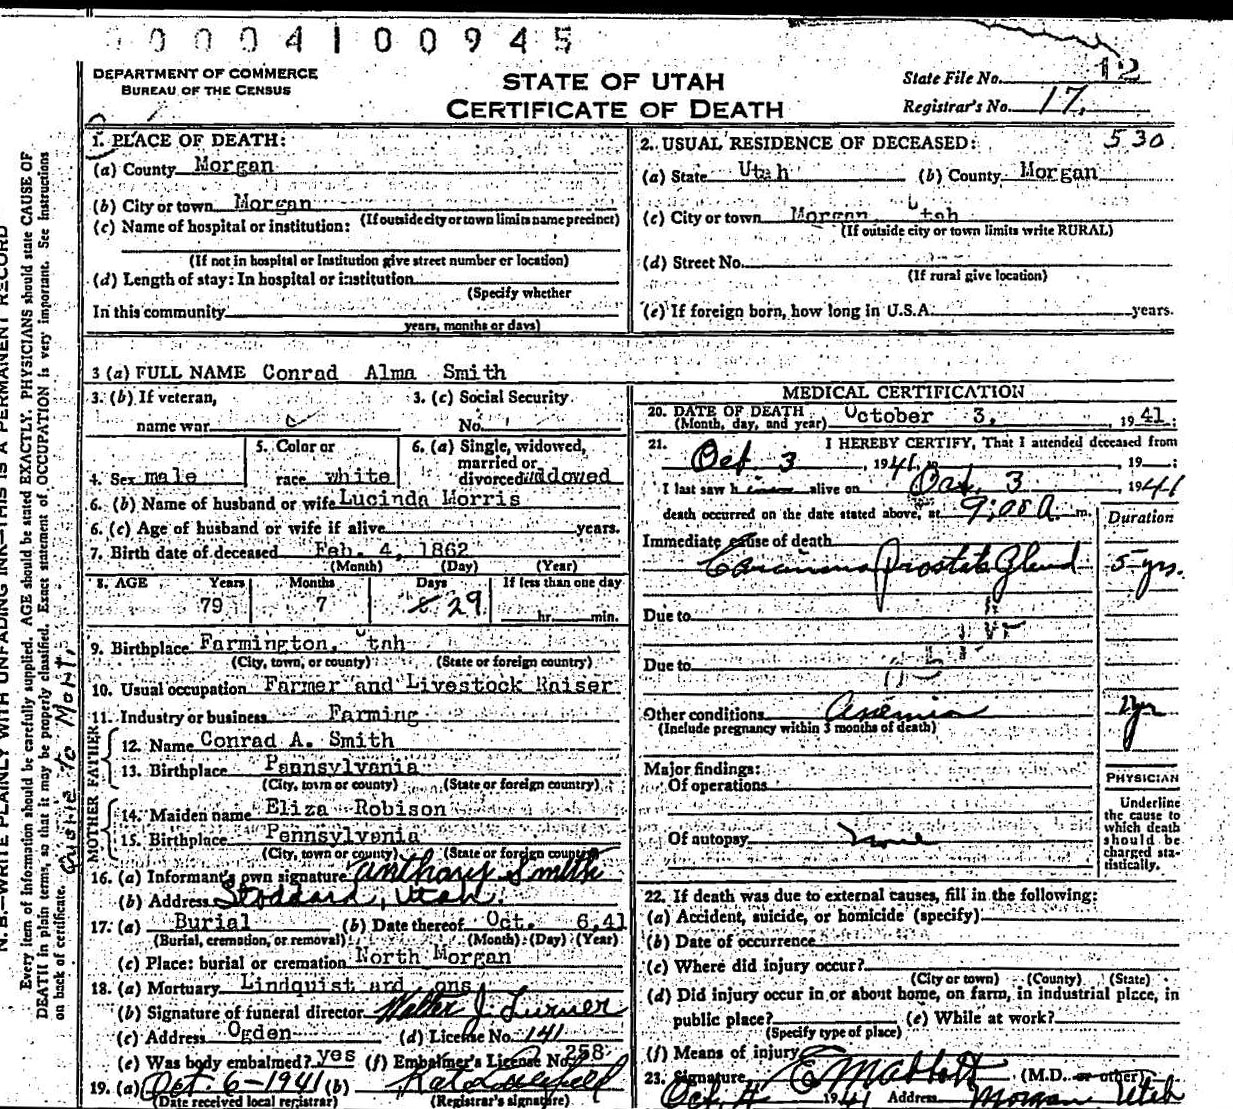 0 0 0 4 1 0 0 9 4 5
DEPARTMENT OF COMMERCE
BUREAU OF THE CENSUS
STATE OF UTAH
CERTIFICATE OF DEATH
State File No. 12
Registrar's No. 17.
1. PLACE OF DEATH:
(a) County Morgan
(b) City or town Morgan
(If outside city or town limits name precinct)
(c) Name of hospital or institution:
(If not in hospital or Institution give street number or location)
(d) Length of stay: In hospital or institution
(Specify whether
In this community
years, months or days)
2. USUAL RESIDENCE OF DECEASED: 530
(a) State Utah (b) County Morgan
(c) City or town Morgan Utah
(If outside city or town limits write RURAL)
(d) Street No.
(If rural give location)
(e) If foreign born, how long in U.S.A. years.
3 (a) FULL NAME Conrad Alma Smith
3. (b) If veteran,
name war
3. (c) Social Security
No.
4. Sex male
5. Color or
race white
6. (a) Single, widowed,
married or
divorced widowed
6. (b) Name of husband or wife Lucinda Morris
6. (c) Age of husband or wife if alive years.
7. Birth date of deceased Feb. 4, 1862
(Month) (Day) (Year)
8. AGE Years Months Days If less than one day
79 7 29 hr. min.
9. Birthplace Farmington, Utah
(City, town, or county) (State or foreign country)
10. Usual occupation Farmer and Livestock Raiser
11. Industry or business Farming
FATHER
12. Name Conrad A. Smith
13. Birthplace Pannsylvania
(City, town or county) (State or foreign country)
MOTHER
14. Maiden name Eliza Robison
15. Birthplace Pennsylvania
(City, town or county) (State or foreign country)
16. (a) Informant's own signature Anthony Smith
(b) Address Stoddard, Utah.
17. (a) Burial (b) Date thereof Oct. 6,41
(Burial, cremation, or removal) (Month) (Day) (Year)
(c) Place: burial or cremation North Morgan
18. (a) Mortuary Lindquist and ons
(b) Signature of funeral director Walter J. Turner
(c) Address Ogden (d) License No. 141
(e) Was body embalmed? yes (f) Embalmer's License No. 258
19. (a) Oct. 6-1941 (b)
(Date received local registrar) (Registrar's signature)
MEDICAL CERTIFICATION
20. DATE OF DEATH October 3, 1941;
(Month, day, and year)
21. I HEREBY CERTIFY, That I attended deceased from
Oct 3, 1941, 19
I last saw him alive on Oct. 3 1941
death occurred on the date stated above, at 9:00 A. m.
Duration
Immediate cause of death
Carcinoma Prostate Gland 5 yrs.
Due to
Due to
Other conditions Anemia 1 yr
(Include pregnancy within 3 months of death)
Major findings:
Of operations
Of autopsy None
PHYSICIAN
Underline
the cause to
which death
should be
charged sta-
tistically.
22. If death was due to external causes, fill in the following:
(a) Accident, suicide, or homicide (specify)
(b) Date of occurrence
(c) Where did injury occur?
(City or town) (County) (State)
(d) Did injury occur in or about home, on farm, in industrial place, in
public place? (e) While at work?
(Specify type of place)
(f) Means of injury
23. Signature (M.D. or other)
Oct. 4 1941 Address Morgan Utah
N. B.—WRITE PLAINLY WITH UNFADING INK—THIS IS A PERMANENT RECORD
Every item of information should be carefully supplied. AGE should be stated EXACTLY. PHYSICIANS should state CAUSE OF
DEATH in plain terms, so that it may be properly classified. Exact statement of OCCUPATION is very important. See Instructions
on back of certificate.